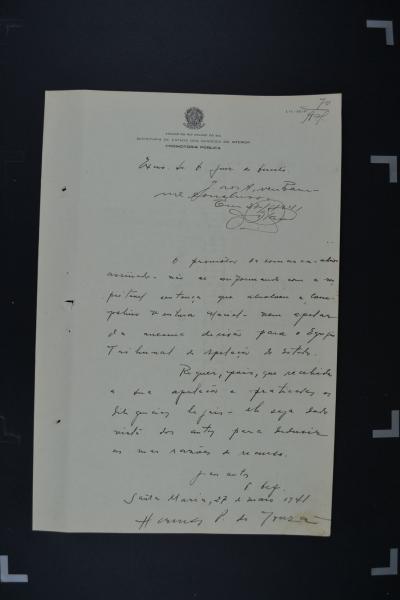 70
ESTADO DO RIO GRANDE DO SUL
SECRETARIA DE ESTADO DOS NEGÓCIOS DO INTERIOR
PROMOTORIA PÚBLICA
Exmo. Sr. Dr. Juiz de Direito
O promotor da comarca - abaixo
assinado - não se conformando com a res
peitavel sentença que absolveu a
vem apelar
da mesma decisão para o Egregio
Tribunal de Apelação do Estado.
Requer, pois, que recebida
a sua apelação e praticadas as
diligencias legais - lhe seja dado
vista dos autos para deduzir
as suas razões de recurso.
P. Def.
Santa Maria, 27 de maio 1941
P. de Souza